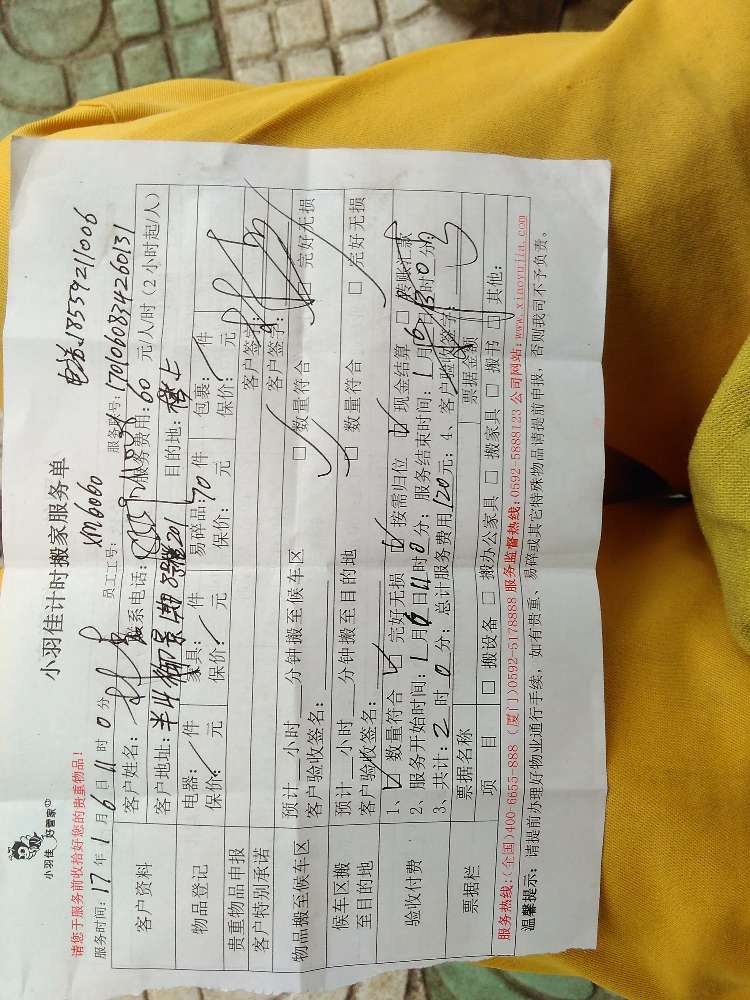 小羽佳 好管家
小羽佳计时搬家服务单
电话:18559211006
请您于服务前收拾好您的贵重物品!
服务时间:17年1月6日11时0分 员工工号: XM6060 服务联号:1701060834260131
客户资料
客户姓名: 联系电话: 服务费用:60元/人/时(2小时起/人)
客户地址: 目的地:楼上
物品登记
电器: 件 家具: 件 易碎品:70件 包裹: 件
保价: 元 保价: 元 保价: 元 保价: 元
贵重物品申报 客户签字:
客户特别承诺 客户签字:
物品搬至候车区
预计 小时 分钟搬至候车区 □数量符合 □完好无损
客户验收签名:
候车区搬至目的地
预计 小时 分钟搬至目的地 □数量符合 □完好无损
客户验收签名:
验收付费
1、□数量符合 □完好无损 □按需归位 □现金结算 □转账汇款
2、服务开始时间:1月6日11时0分; 服务结束时间:1月6日13时0分
3、共计:2时0分; 总计服务费用120元; 4、客户验收签字:
票据栏
票据名称 票据金额
项目 □搬设备 □搬办公家具 □搬家具 □搬书 □其他:
服务热线:(全国)400-6655-888 (厦门)0592-5178888 服务监督热线:0592-5888123 公司网站:www.xiaoyujia.com
温馨提示:请提前办理好物业通行手续,如有贵重、易碎或其它特殊物品请提前申报,否则我司不予负责。